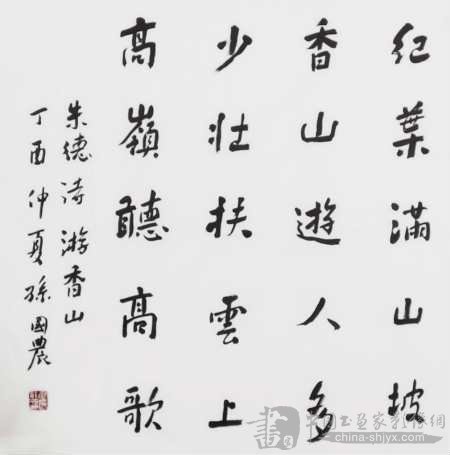 紅葉滿山坡
香山遊人多
少壯扶雲上
高嶺聽高歌
朱德诗游香山
丁酉仲夏孫國農
china-shjyx.com